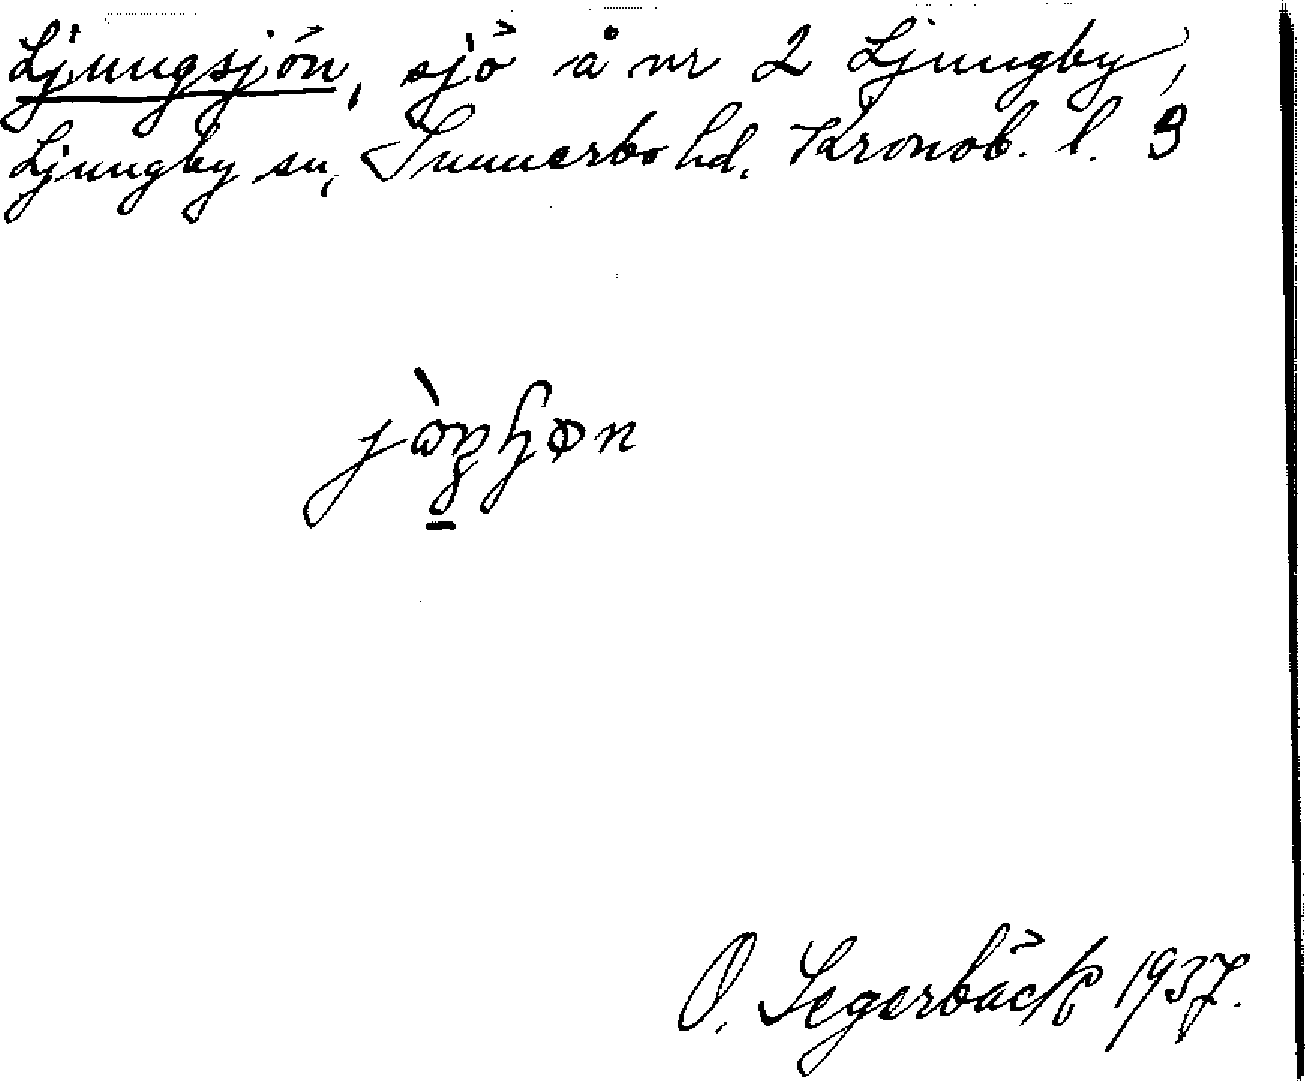 Ljungsjön, sjö å nr 2 Ljungby,
Ljungby sn, Sunnerbo hd. Kronob. l. S
O. Segerbäck 1937.